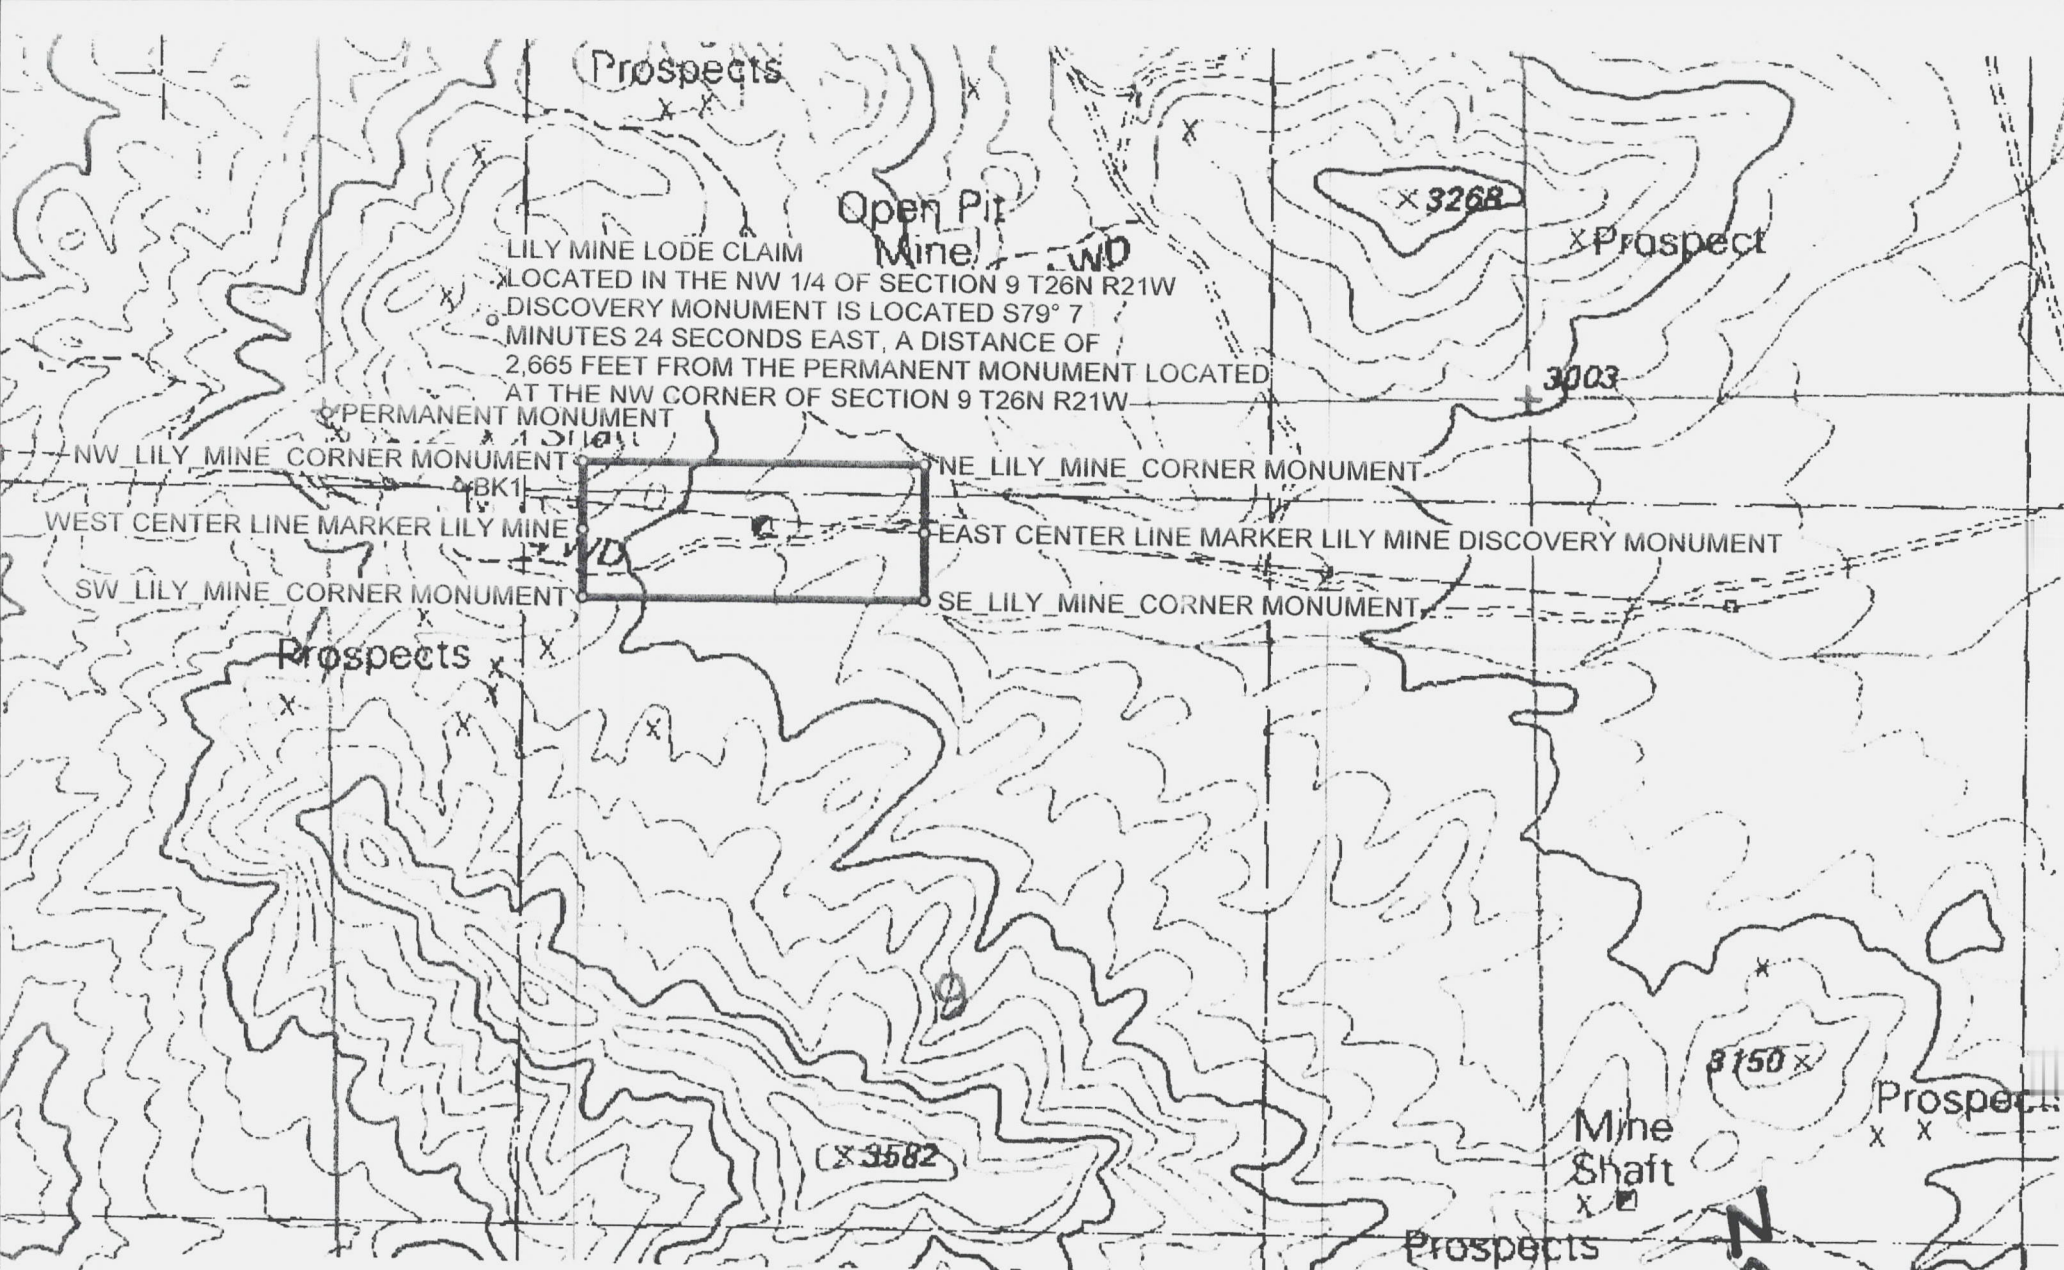 Prospects
Open Pit
Mine
WD
3268
Prospect
LILY MINE LODE CLAIM
LOCATED IN THE NW 1/4 OF SECTION 9 T26N R21W
DISCOVERY MONUMENT IS LOCATED S79° 7
MINUTES 24 SECONDS EAST, A DISTANCE OF
2,665 FEET FROM THE PERMANENT MONUMENT LOCATED
AT THE NW CORNER OF SECTION 9 T26N R21W
3003
PERMANENT MONUMENT
NW_LILY_MINE_CORNER MONUMENT
NE_LILY_MINE_CORNER MONUMENT
BK1
WEST CENTER LINE MARKER LILY MINE
EAST CENTER LINE MARKER LILY MINE DISCOVERY MONUMENT
WD
SW_LILY_MINE_CORNER MONUMENT
SE_LILY_MINE_CORNER MONUMENT
Prospects
9
3150
Prospect
Mine
Shaft
3582
N
Prospects